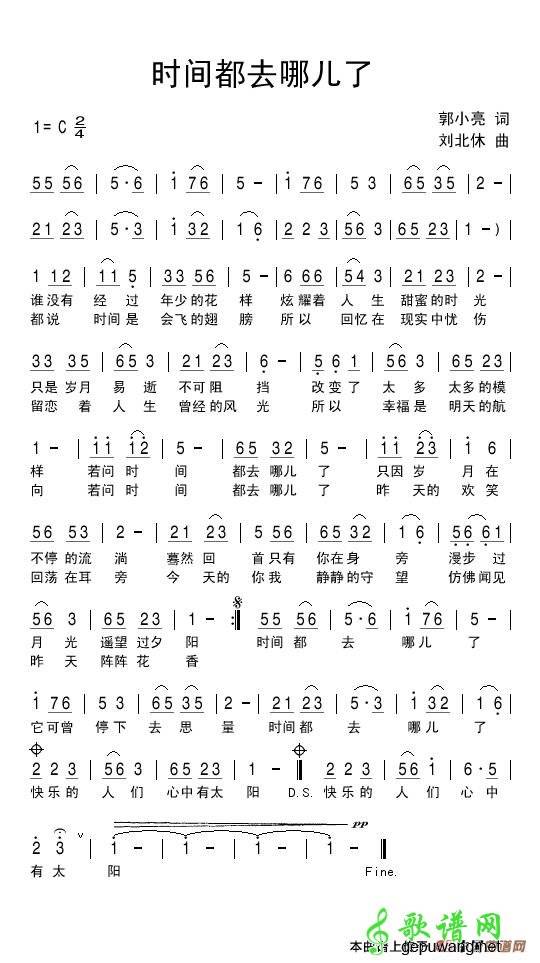 时间都去哪儿了
1= C 2/4
郭小亮 词
刘北休 曲
55 56 | 5·6 | 1 76 | 5 - | 1 76 | 5 3 | 65 35 | 2 - |
21 23 | 5·3 | 1 32 | 1 6 | 2 2 3 | 56 3 | 65 23 | 1 - ) |
1 12 | 11 5 | 33 56 | 6 - | 1 66 | 54 3 | 21 23 | 5 - |
谁没有 经 过 年少的花 样 炫耀着 人 生 甜蜜的时 光
都说 时间是 会飞的翅 膀 所以 回忆在 现实中忧 伤
33 35 | 65 3 | 21 23 | 6 - | 5 6 1 | 56 3 | 65 23 |
只是岁月 易 逝 不可阻 挡 改变了 太 多 太多的模
留恋 着 人 生 曾经的风 光 所以 幸福是 明天的航
1 - | 11 12 | 5 - | 65 32 | 5 - | 11 23 | 1 6 |
样 若问时 间 都去哪儿 了 只因岁 月在
向 若问时 间 都去哪儿 了 昨天的 欢笑
56 53 | 2 - | 23 23 | 5 5 | 65 32 | 1 6 | 56 61 |
不停的流 淌 蓦然回 首只有 你在身 旁 漫步 过
回荡在耳 旁 今 天的 你我 静静的守 望 仿佛闻见
56 3 | 65 23 | 1 - :‖ 55 56 | 5·6 | 1 76 | 5 - |
月 光 遥望过夕 阳 时间都 去 哪儿 了
昨 天 阵阵花 香
1 76 | 5 3 | 65 35 | 2 - | 21 23 | 5·3 | 1 76 | 5 - |
它可曾 停下 去思 量 时间都 去 哪儿 了
2 2 3 | 56 3 | 65 23 | 1 - ‖ 2 2 3 | 56 1 | 6·5 |
快乐的 人 们 心中有太 阳 D.S. 快乐的 人 们 心 中
2 3 ∨ | 1 - | 1 - | 1 - | 1 - ‖ pp
有太 阳 Fine.
歌谱网
gepuwang.net